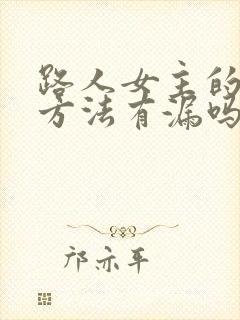 路人女主的
方法有漏吗
邝亦平